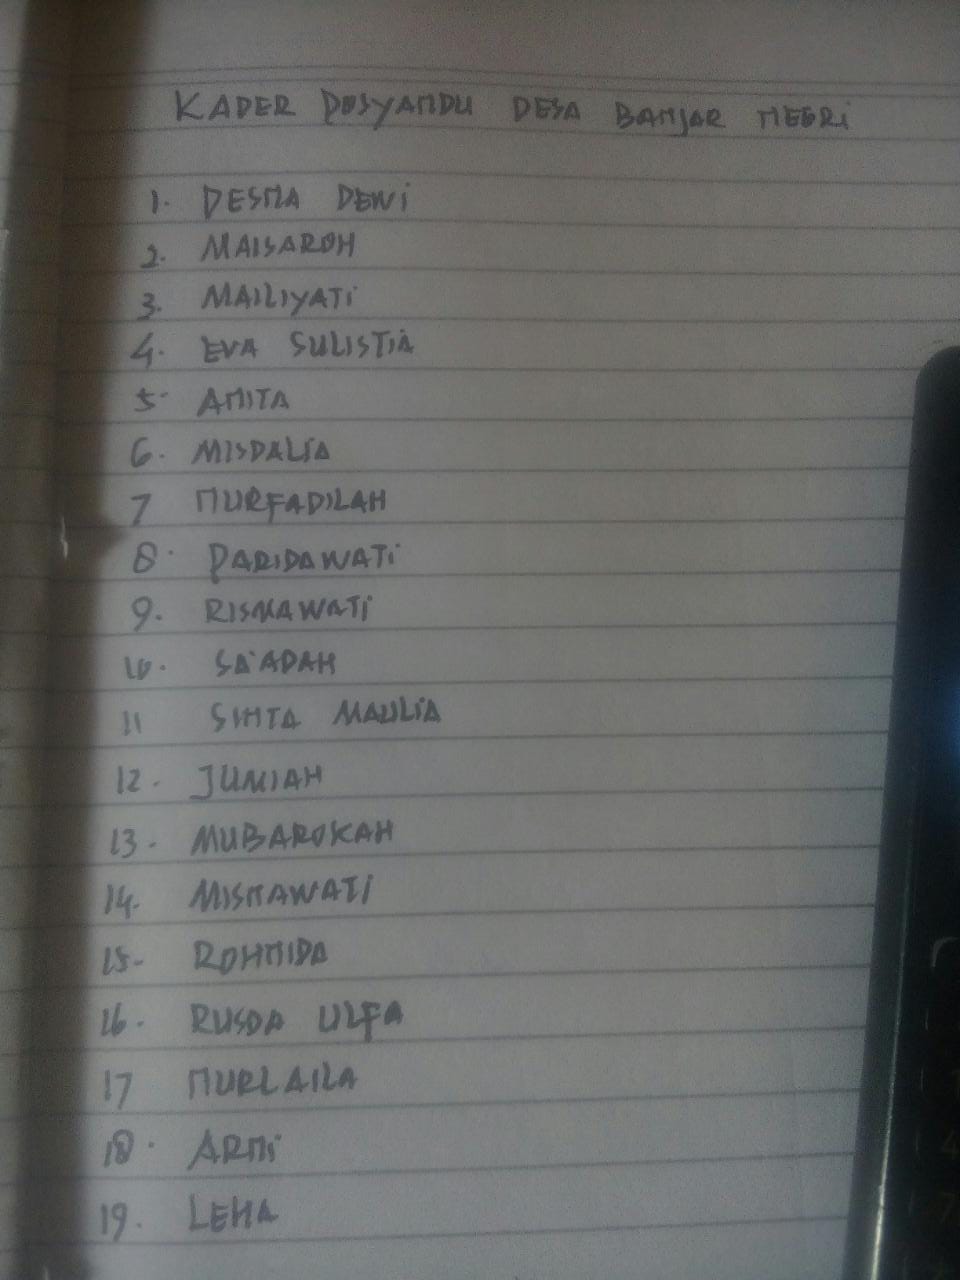 KADER POSYANDU DESA BANJAR NEGRI
1. DESNA DEWI
2. MAISAROH
3. MAILIYATI
4. EVA SULISTIA
5. ANITA
6. MISDALIA
7 NURFADILAH
8. PARIDAWATI
9. RISMAWATI
10. SA'ADAH
11 SINTA MAULIA
12. JUMIAH
13. MUBAROKAH
14. MISNAWATI
15. ROHNIDA
16. RUSDA ULFA
17 NURLAILA
18. ARNI
19. LEHA